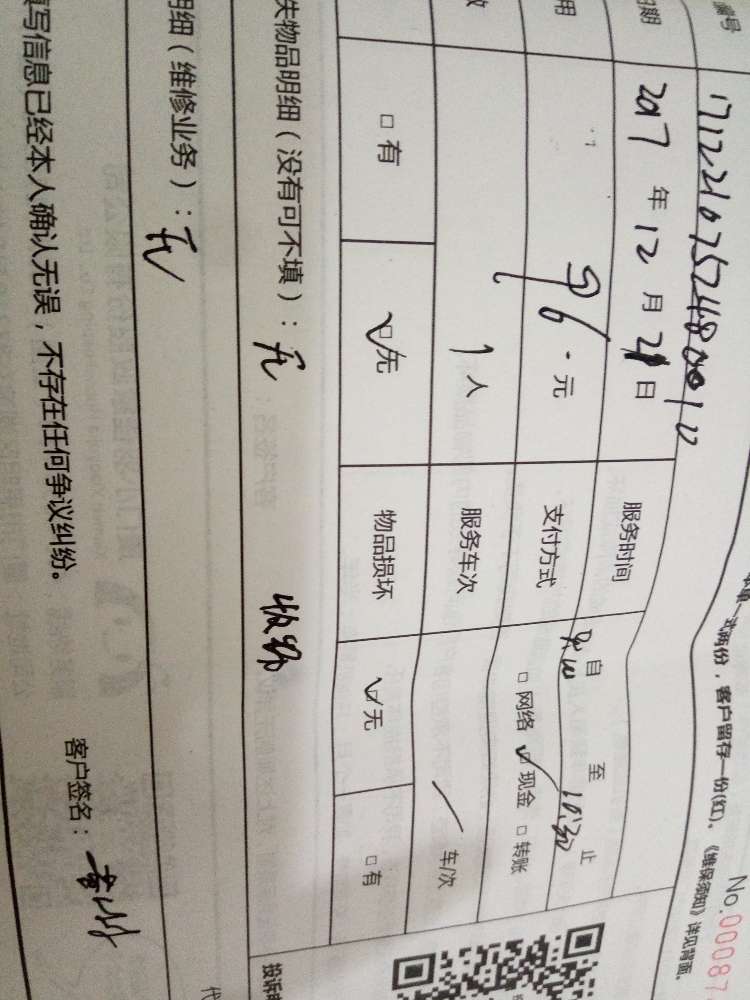 本单一式两份，客户留存一份(红)。《维保须知》详见背面。 No.00087
编号 171221075724800010
日期 2017 年 12 月 21 日 服务时间 自 至 10:30 止
用 96.元 支付方式 □ 网络 ☑ 现金 □ 转账
数 1 人 服务车次 / 车/次
□ 有 ☑ 无 物品损坏 ☑ 无 □ 有
失物品明细（没有可不填）：无
明细（维修业务）：无
填写信息已经本人确认无误，不存在任何争议纠纷。 客户签名：
投诉电
代